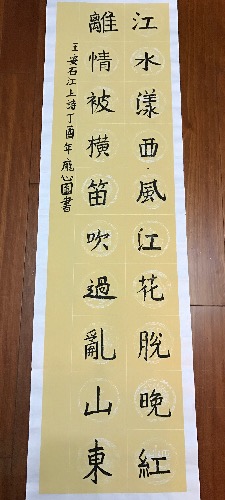 江水漾西風江花脫晚紅
離情被橫笛吹過亂山東
王安石江上诗丁酉年龐心園書